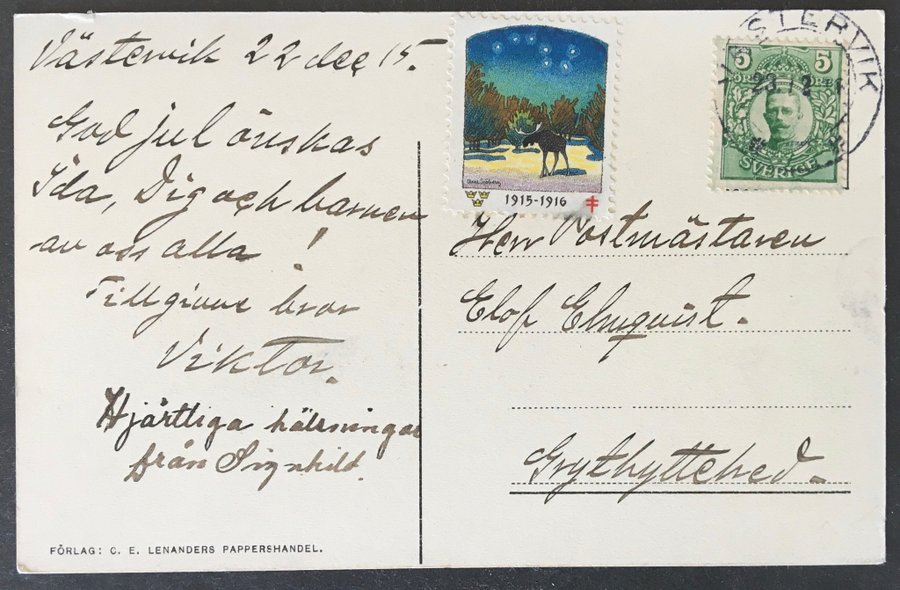 Västervik 22 dec 15.
God jul önskas
Ida, Dig och barnen
av oss alla !
Tillgivne bror
Viktor.
Hjärtliga hälsningar
från Signhild.
FÖRLAG: C. E. LENANDERS PAPPERSHANDEL.
1915-1916
VÄSTERVIK
23.12
5 5
ÖRE ÖRE
SVERIGE
Herr Postmästaren
Elof Elmquist.
Grythyttehed.